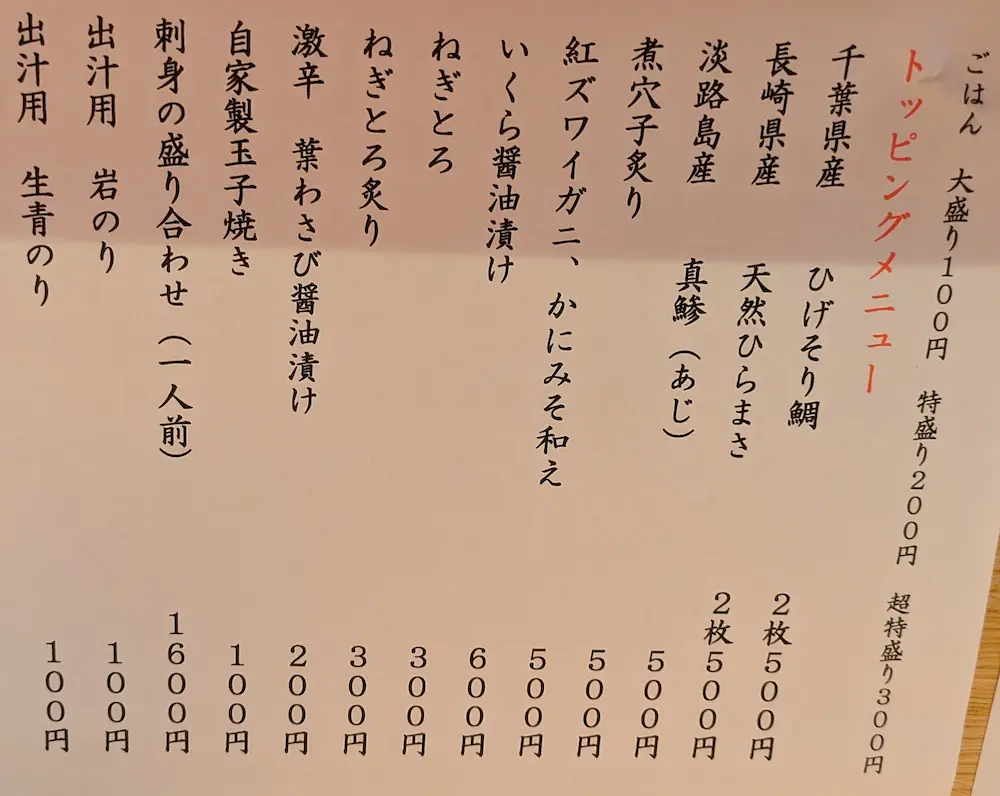 ごはん 大盛り100円 特盛り200円 超特盛り300円
トッピングメニュー
千葉県産 ひげそり鯛 2枚500円
長崎県産 天然ひらまさ 2枚500円
淡路島産 真鯵(あじ) 500円
煮穴子炙り 500円
紅ズワイガニ、かにみそ和え 500円
いくら醤油漬け 600円
ねぎとろ 300円
ねぎとろ炙り 300円
激辛 葉わさび醤油漬け 200円
自家製玉子焼き 100円
刺身の盛り合わせ(一人前) 1600円
出汁用 岩のり 100円
出汁用 生青のり 100円